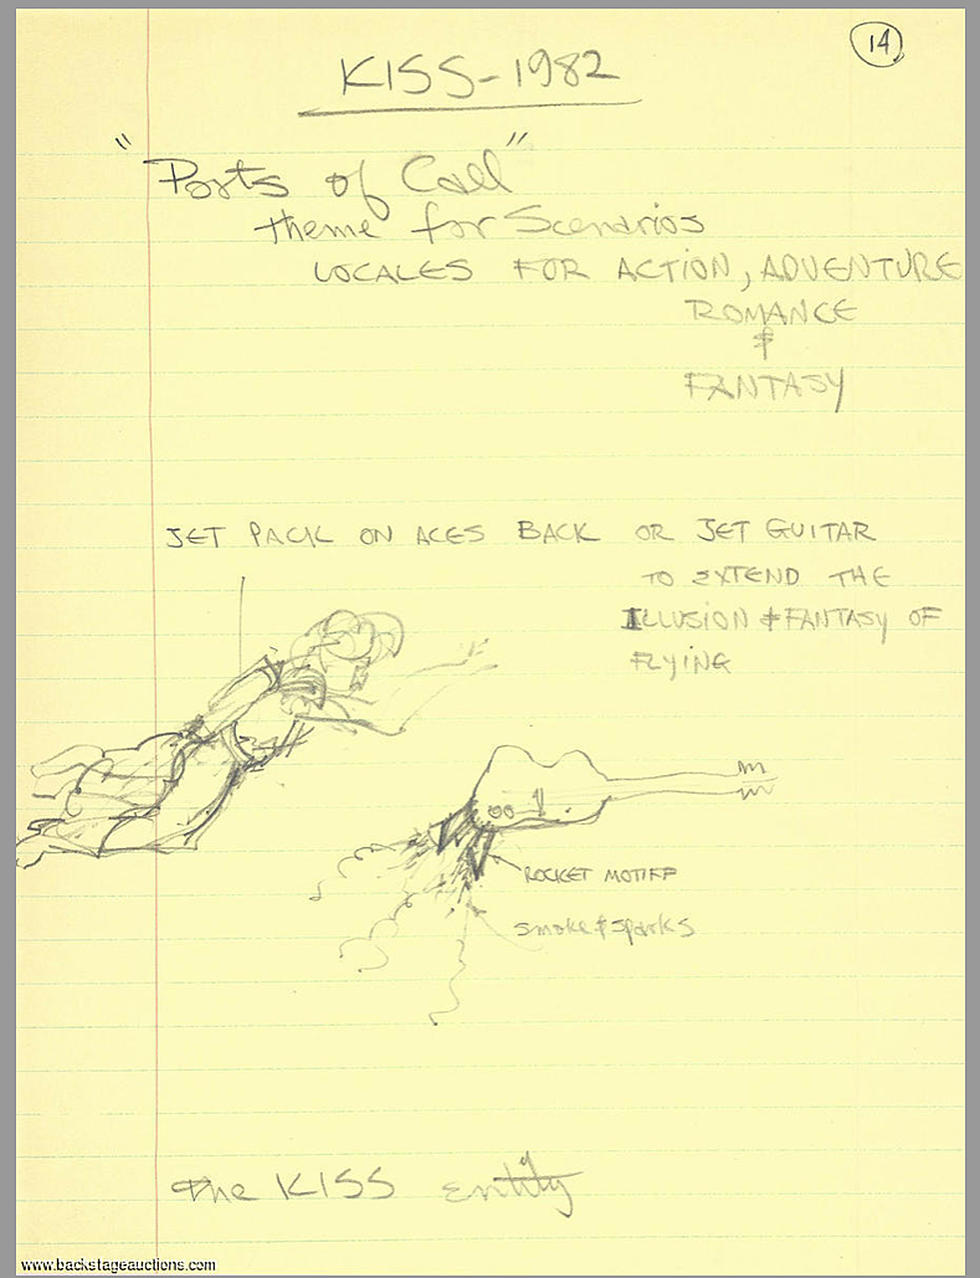 14
KISS-1982
"Ports of Call"
theme for Scenarios
LOCALES FOR ACTION, ADVENTURE
ROMANCE
&
FANTASY
JET PACK ON ACES BACK OR JET GUITAR
TO EXTEND THE
ILLUSION & FANTASY OF
FLYING
ROCKET MOTIFF
smoke & sparks
the KISS Entity
www.backstageauctions.com